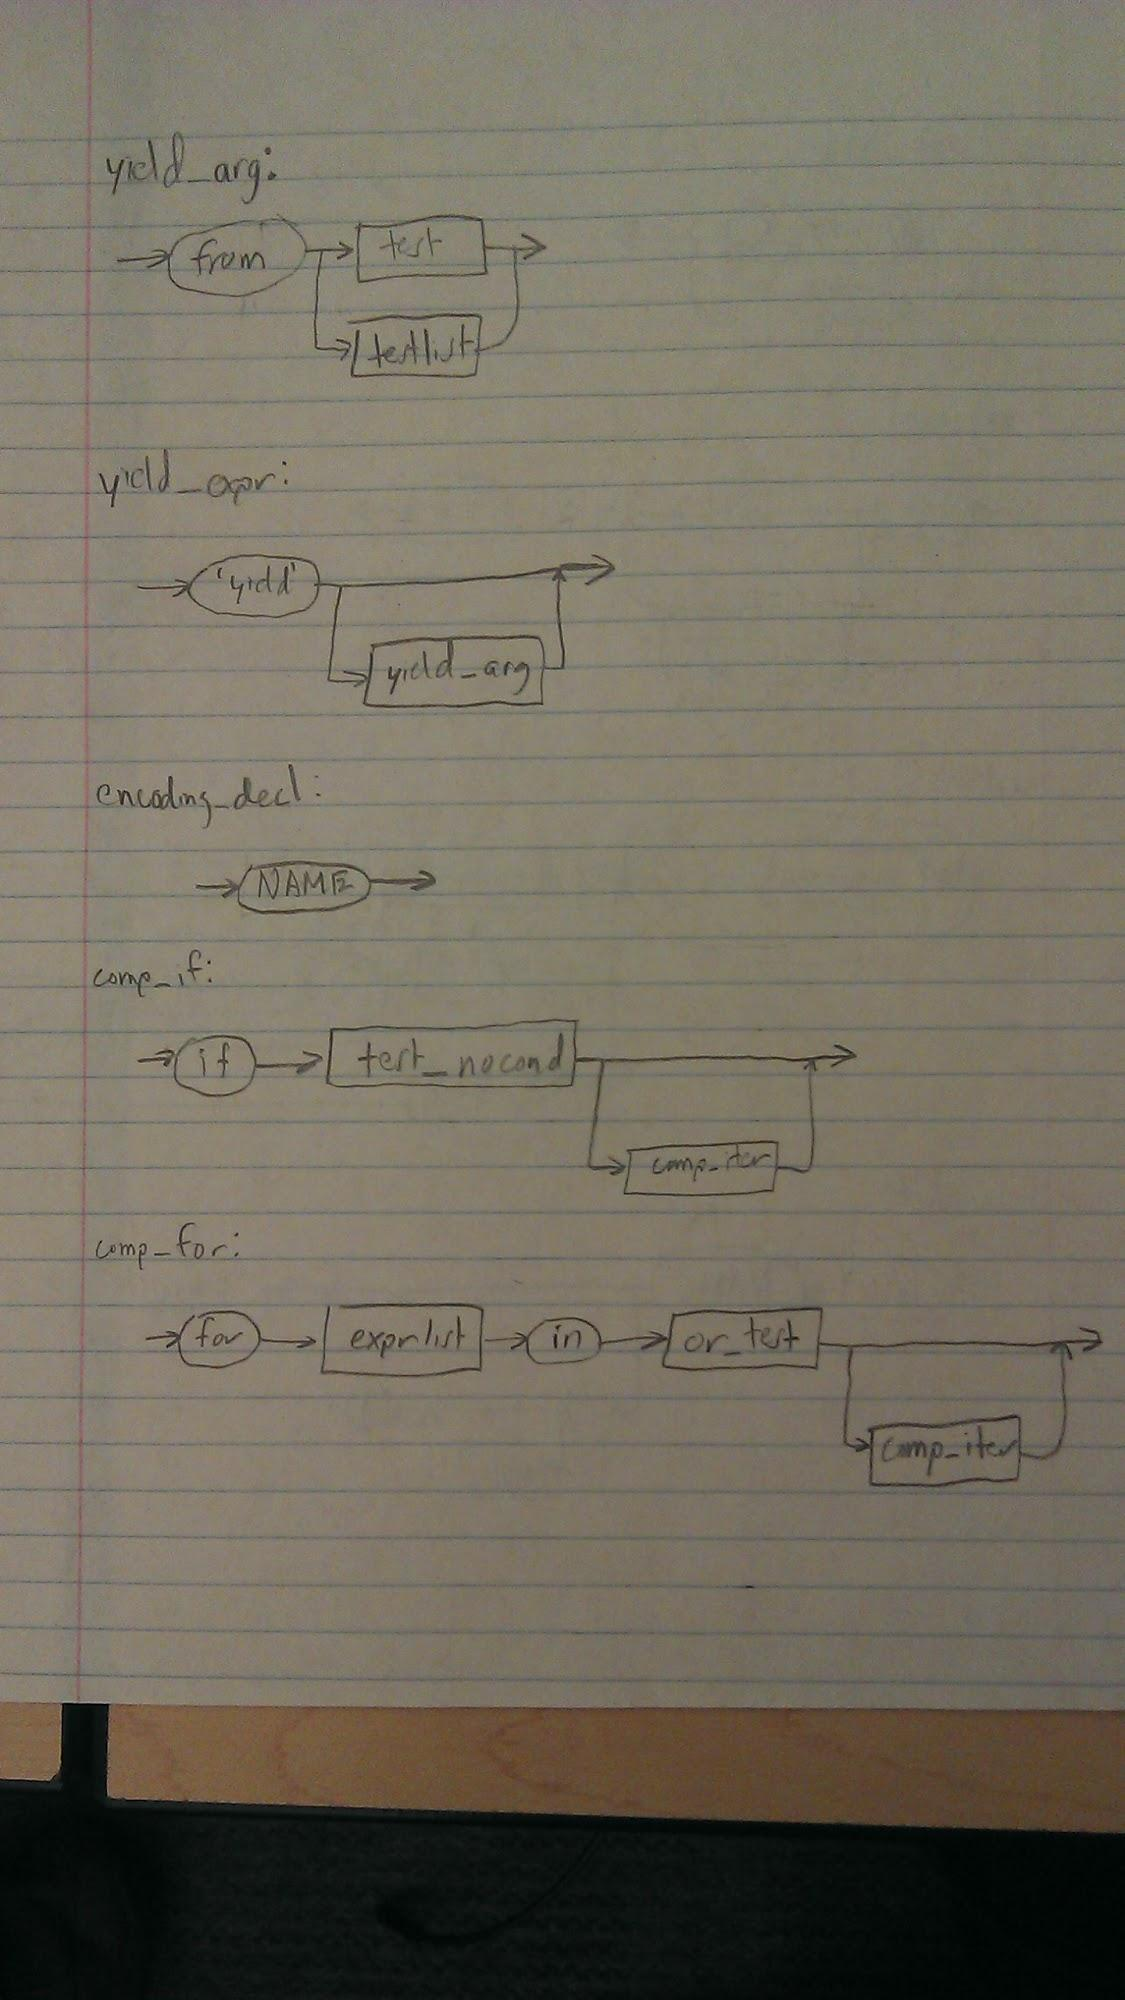 yield_arg:
from test
testlist
yield_expr:
'yield'
yield_arg
encoding_decl:
NAME
comp_if:
if test_nocond
comp_iter
comp_for:
for exprlist in or_test
comp_iter